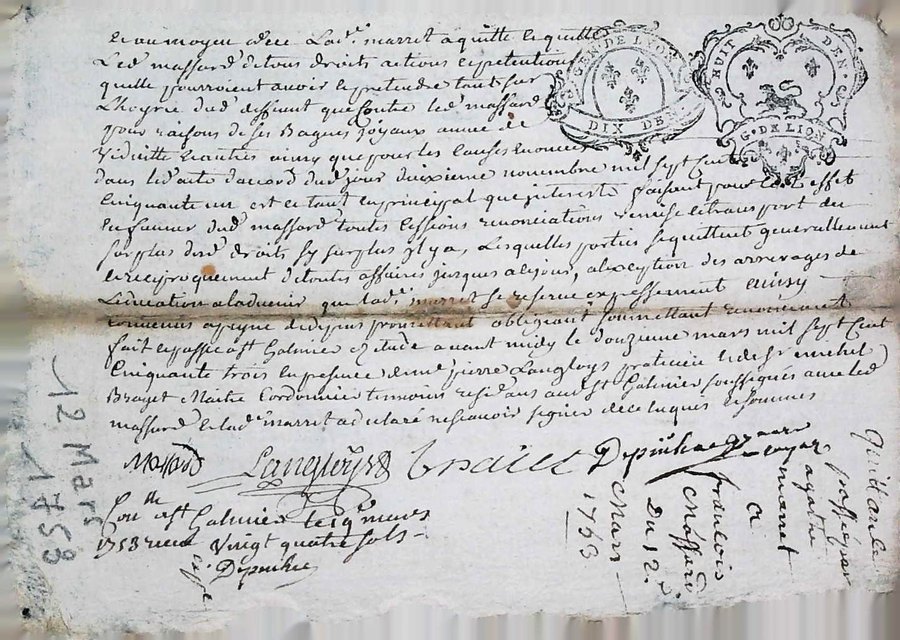 et au moyen dece Lad.e marret a quitté le quitte
Led massard de tous droits actions et petentions
quelle pourroient avoir et pretendre tant sur
L'hoyrie dud deffunt que Contre led massard
pour raisons de ses Bagues joyaux année de
Viduitté et autres ainsy que pour les Causes enoncé
dans led acte d'accord dud jour deuxieme novembre mil sept Cent
Cinquante un est ce tant en principal que interests faisant pour Cet effet
en faveur dud massard toutes Cessions renonciations remise et transport du
surplus dud droits sy surplus il y a, Lesquelles parties se quittent generallement
et reciproquement de toutes affaires jusques a ce jour, a l'exception des arrerages de
a ladvenir que lad.e marret se reserve expressement ainsy
Convenus a peyne de depens promettant obligeant soumettant renonceant
fait et passé a St Galmier etude avant midy le douzieme mars mil sept Cent
Cinquante trois en presence de me pierre Langloys praticien et de Sr michel
Brayet Maitre Cordonnier temoins residans aud St Galmier soussignés avec led
massard et lad.e marret a declaré ne scavoir signer de ce enquis et sommés
Massard Langloys Braiet Depuihe
Con.lle a St Galmier le 19 mars
1753 recu Vingt quatre sols
Depuihe
GEN. DE LYON
DIX DEN
HUIT DEN.
G. DE LION
Quittance
passée par
agathe
marret
a
francois
Massard
Du 12.
Mars
1753
12 Mars
1753